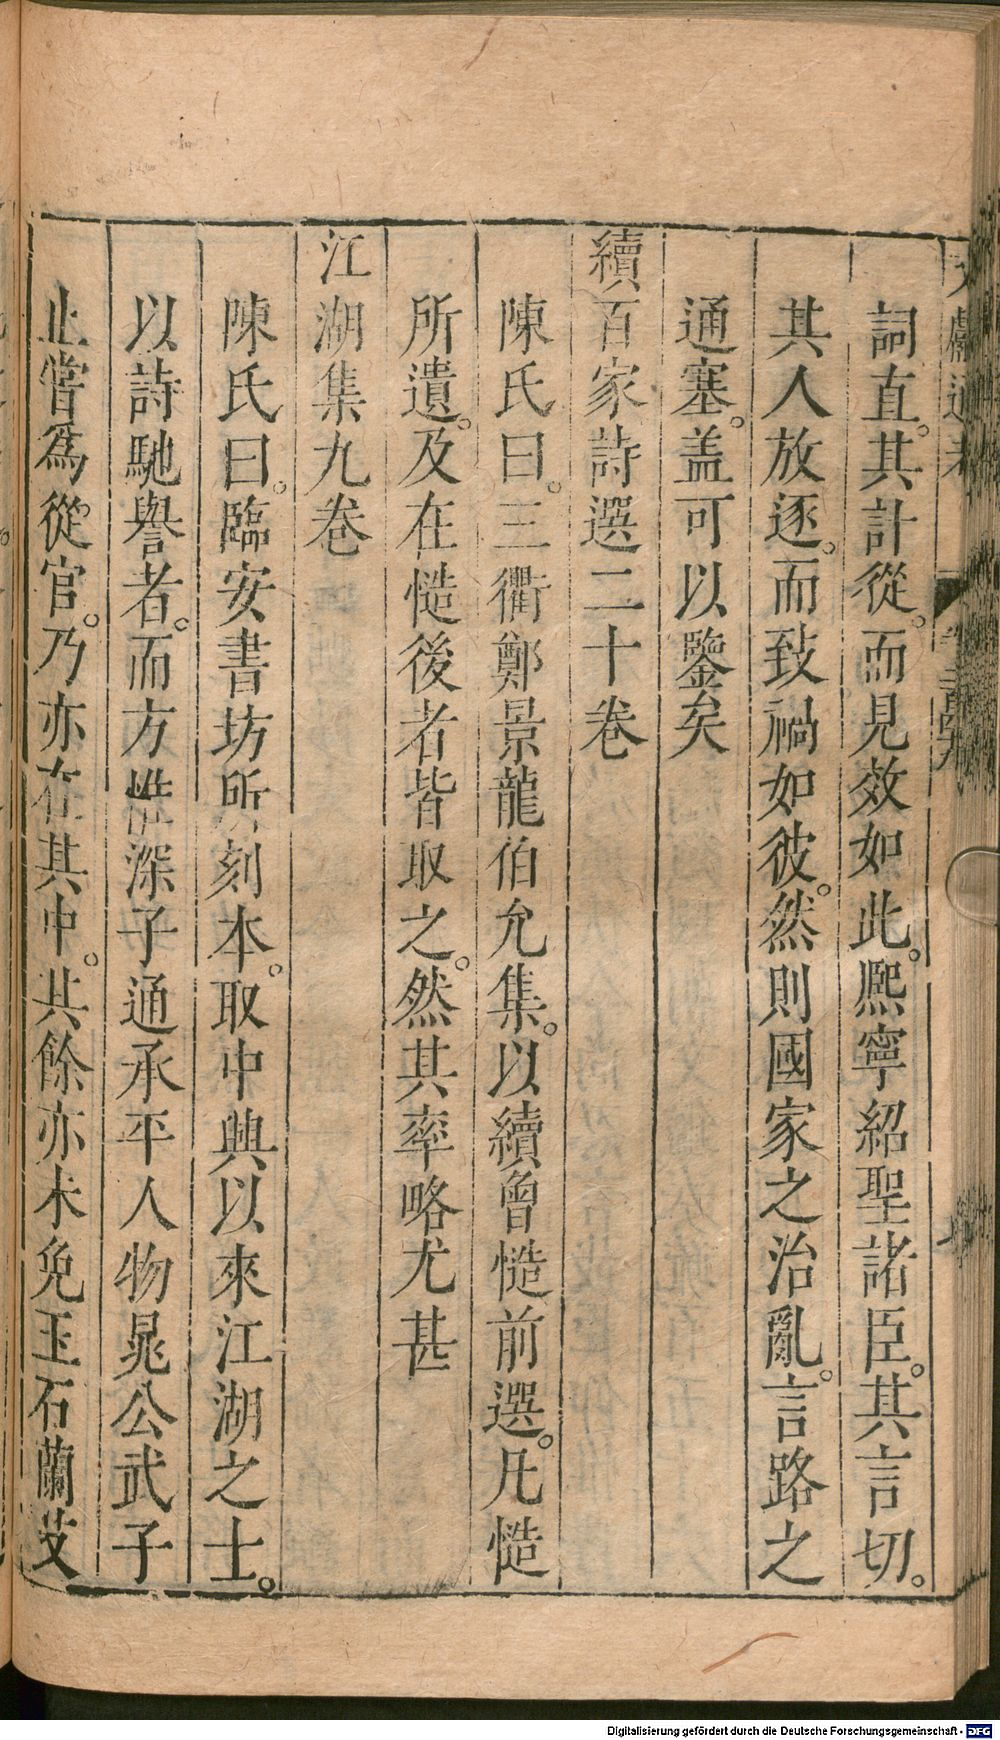 詞直。其計從。而見效如此。熈寧紹聖諸臣。其言切。
其人放逐。而致禍如彼。然則國家之治亂。言路之
通塞。盖可以鑒矣
續百家詩選二十卷
陳氏曰。三衢鄭景龍伯允集。以續曾慥前選。凡慥
所遺。及在慥後者皆取之。然其率略尤甚
江湖集九卷
陳氏曰。臨安書坊所刻本。取中興以來江湖之士。
以詩馳譽者。而方惟深子通承平人物晁公武子
止嘗爲從官。乃亦在其中。其餘亦未免玉石蘭艾
Digitalisierung gefördert durch die Deutsche Forschungsgemeinschaft - DFG